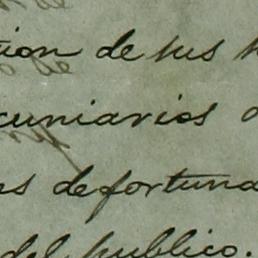 ion de sus
cuniarios
s de fortuna
del publico.